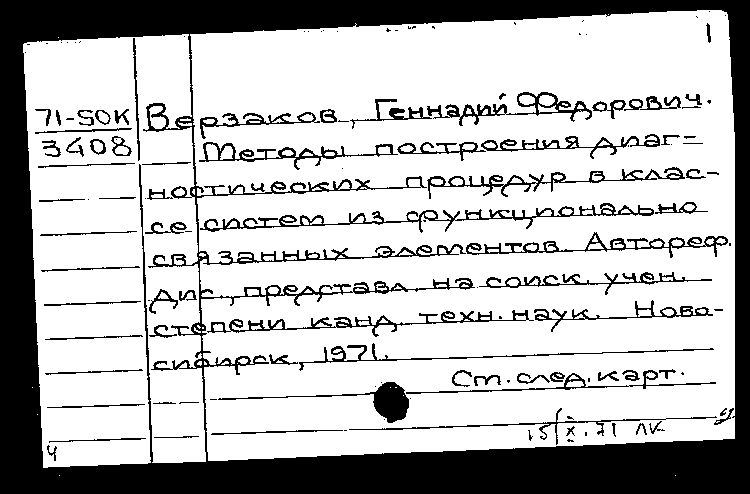 1
71-5OK Верзаков, Геннадий Федорович.
3408 Методы построения диаг=
ностических процедур в клас-
се систем из функционально
связанных элементов. Автореф.
дис., представл. на соиск. учен.
степени канд. техн. наук. Ново-
сибирск, 1971.
См. след. карт.
15/X.71 ЛК
ч